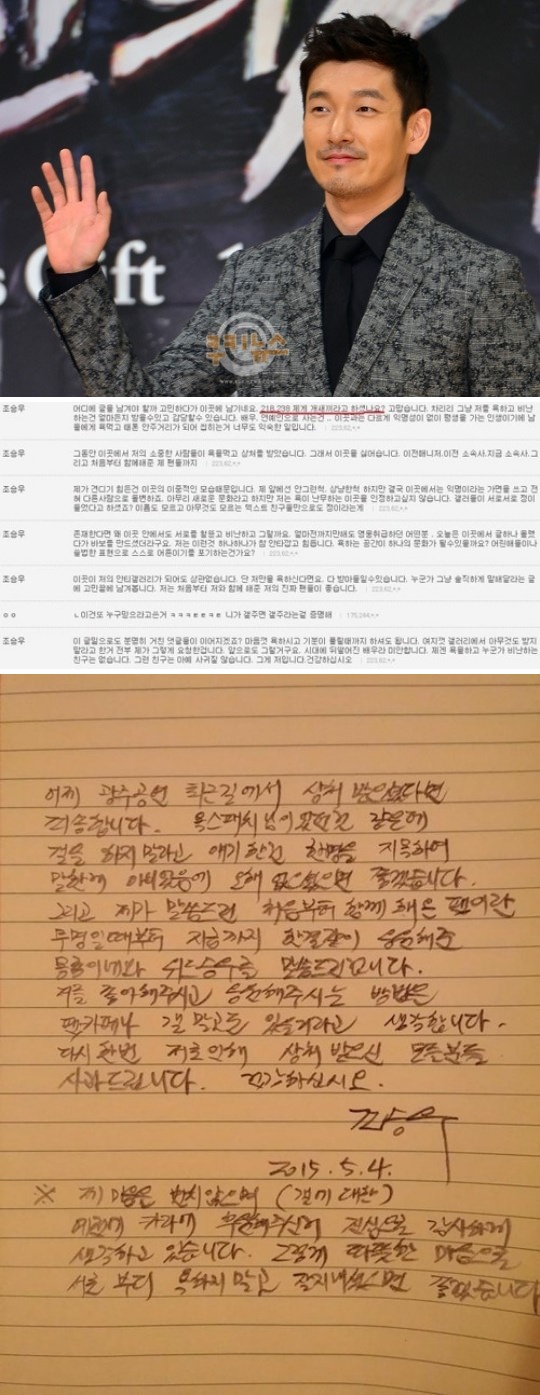 s Gift
우리뉴스
조승우 어디에 글을 남겨야 할까 고민하다가 이곳에 남기네요. 218.238 제게 개새끼라고 하셨나요? 고맙습니다. 차라리 그냥 저를 욕하고 비난
하는건 얼마든지 받을수있고 감당할수 있습니다. 배우, 연예인으로 사는건 .. 이곳과는 다르게 익명성이 없이 평생을 가는 인생이기에 남
들에게 욕먹고 때론 안주거리가 되어 씹히는거 너무도 익숙한 일입니다. 223.62.*.*
조승우 그동안 이곳에서 저의 소중한 사람들이 욕을먹고 상처를 받았습니다. 그래서 이곳을 싫어습니다. 이전매니저.이전 소속사.지금 소속사.그
리고 처음부터 함께해준 제 팬들까지 223.62.*.*
조승우 제가 견디기 힘든건 이곳의 이중적인 모습때문입니다. 제 앞에선 안그런척, 상냥한척 하지만 결국 이곳에서는 익명이라는 가면을 쓰고 전
혀 다른사람으로 돌변하죠. 아무리 새로운 문화라고 하지만 저는 욕이 난무하는 이곳을 인정하고싶지 않습니다. 갤러들이 서로서로 정이
들었다고 하셨죠? 이름도 모르고 아무것도 모르는 텍스트 친구들만으로도 정이라는게 223.62.*.*
조승우 존재한다면 왜 이곳 안에서도 서로를 헐뜯고 비난하고 그럴까요. 얼마전까지만해도 영웅취급하던 어떤분 . 오늘은 이곳에서 글하나 올렸
다가 바보를 만드셨더라구요. 저는 이런것 하나하나가 참 안타깝고 힘듭니다. 욕하는 공간이 하나의 문화가 될수있을까요? 어린애들이나
쓸법한 표현으로 스스로 어른이기를 포기하는건가요? 223.62.*.*
조승우 이곳이 저의 안티갤러리가 되어도 상관없습니다. 단 저만을 욕하신다면요. 다 받아들일수있습니다. 누군가 그냥 솔직하게 말해달라는 글
에 고민끝에 남겨봅니다. 저는 처음부터 저와 함께 해준 저의 진짜 팬들이 좋습니다. 223.62.*.*
ㅇㅇ ㄴ미건또 누구믿으라고쓴거 ㅋㅋㅋㅌㅌㅋ 니가 갤주면 갤주라는걸 증명해 175.244.*.*
조승우 이 글일으로도 분명히 거친 댓글들이 이어지겠죠? 마음껏 욕하시고 기분이 풀릴때까지 하셔도 됩니다. 여지껏 갤러리에서 아무것도 받지
말라고 한거 전부 제가 그렇게 요청한겁니다. 앞으로도 그럴거구요. 시대에 뒤떨어진 배우라 미안합니다. 제겐 욕을하고 누군가 비난하는
친구는 없습니다. 그런 친구는 아예 사귀질 않습니다. 그게 저입니다.건강하십시오 223.62.*.*
어제 광주공연 퇴근길에서 상처 받으셨다면
죄송합니다.
걸을 하지말라고 얘기한건 한명을 지목하여
말한게 아니었음에 오해 없으셨으면 좋겠습니다.
그리고 제가 말씀드린 처음부터 함께 해온 팬이란
무명일때부터 지금까지 한결같이 응원해준
말씀드린겁니다.
저를 좋아해주시고 응원해주시는 방법은
팬카페나 갤 말고도 있을거라고 생각합니다.
다시한번 저로인해 상처 받으신 모든분들
사과드립니다. 건강하십시오.
조승우
2015. 5. 4.
※ 제 마음은 변치않으며 (갤에 대한)
예전에 카라에 후원해주신거 진심으로 감사하게
생각하고 있습니다. 그렇게 따뜻한 마음으로
서로 부디 욕하지말고 잘지내셨으면 좋겠습니다